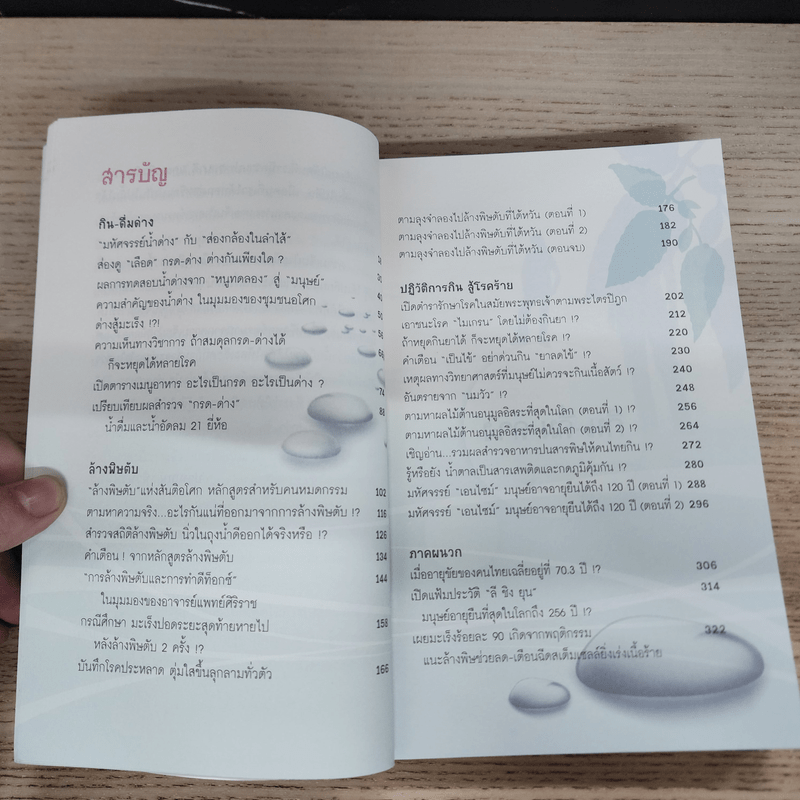 สารบัญ
กิน-ดื่มด่าง
"มหัศจรรย์น้ำด่าง" กับ "ส่องกล้องในลำไส้"
ส่องดู "เลือด" กรด-ด่าง ต่างกันเพียงใด ?
ผลการทดสอบน้ำด่างจาก "หนูทดลอง" สู่ "มนุษย์"
ความสำคัญของน้ำด่าง ในมุมมองของชุมชนอโศก
ด่างสู้มะเร็ง !?!
ความเห็นทางวิชาการ ถ้าสมดุลกรด-ด่างได้
ก็จะหยุดได้หลายโรค
เปิดตารางเมนูอาหาร อะไรเป็นกรด อะไรเป็นด่าง ?
เปรียบเทียบผลสำรวจ "กรด-ด่าง" 88
น้ำดื่มและน้ำอัดลม 21 ยี่ห้อ
ล้างพิษตับ
"ล้างพิษตับ"แห่งสันติอโศก หลักสูตรสำหรับคนหมดกรรม 102
ตามหาความจริง...อะไรกันแน่ที่ออกมาจากการล้างพิษตับ !? 116
สำรวจสถิติล้างพิษตับ นิ่วในถุงน้ำดีออกได้จริงหรือ !? 126
คำเตือน ! จากหลักสูตรล้างพิษตับ 134
"การล้างพิษตับและการทำดีท็อกซ์" 144
ในมุมมองของอาจารย์แพทย์ศิริราช
กรณีศึกษา มะเร็งปอดระยะสุดท้ายหายไป 158
หลังล้างพิษตับ 2 ครั้ง !?
บันทึกโรคประหลาด ตุ่มใสขึ้นลุกลามทั่วตัว 166
ตามลุงจำลองไปล้างพิษตับที่ไต้หวัน (ตอนที่ 1) 176
ตามลุงจำลองไปล้างพิษตับที่ไต้หวัน (ตอนที่ 2) 182
ตามลุงจำลองไปล้างพิษตับที่ไต้หวัน (ตอนจบ) 190
ปฏิวัติการกิน สู้โรคร้าย
เปิดตำรารักษาโรคในสมัยพระพุทธเจ้าตามพระไตรปิฎก 202
เอาชนะโรค "ไมเกรน" โดยไม่ต้องกินยา !? 212
ถ้าหยุดกินยาได้ ก็จะหยุดได้หลายโรค !? 220
คำเตือน "เป็นไข้" อย่าด่วนกิน "ยาลดไข้" !? 230
เหตุผลทางวิทยาศาสตร์ที่มนุษย์ไม่ควรจะกินเนื้อสัตว์ !? 240
อันตรายจาก "นมวัว" !? 248
ตามหาผลไม้ต้านอนุมูลอิสระที่สุดในโลก (ตอนที่ 1) !? 256
ตามหาผลไม้ต้านอนุมูลอิสระที่สุดในโลก (ตอนที่ 2) !? 264
เชิญอ่าน...รวมผลสำรวจอาหารปนสารพิษให้คนไทยกิน !? 272
รู้หรือยัง น้ำตาลเป็นสารเสพติดและกดภูมิคุ้มกัน !? 280
มหัศจรรย์ "เอนไซม์" มนุษย์อาจอายุยืนได้ถึง 120 ปี (ตอนที่ 1) 288
มหัศจรรย์ "เอนไซม์" มนุษย์อาจอายุยืนได้ถึง 120 ปี (ตอนที่ 2) 296
ภาคผนวก
เมื่ออายุขัยของคนไทยเฉลี่ยอยู่ที่ 70.3 ปี !? 306
เปิดแฟ้มประวัติ "ลี ชิง ยุน" 314
มนุษย์อายุยืนที่สุดในโลกถึง 256 ปี !?
เผยมะเร็งร้อยละ 90 เกิดจากพฤติกรรม 322
แนะล้างพิษช่วยลด-เตือนฉีดสเต็มเซลล์ยิ่งเร่งเนื้อร้าย